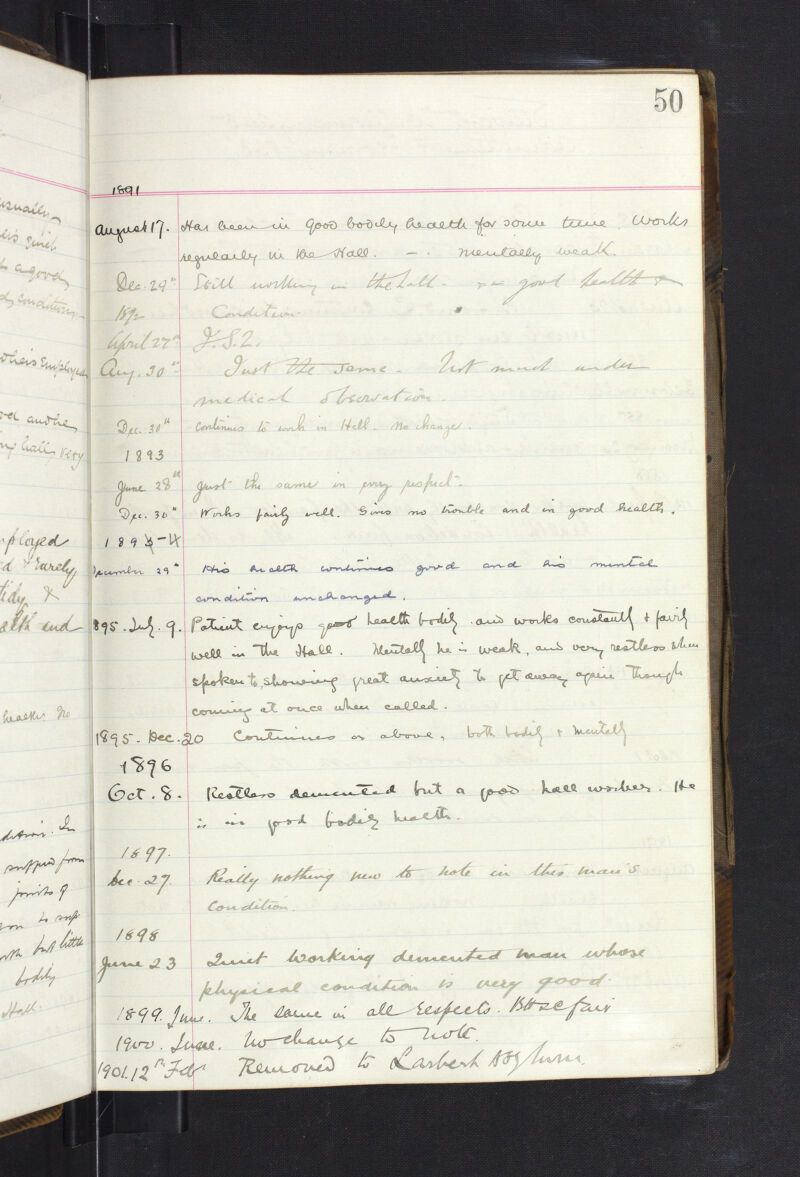 50
1891
August 17. Has been in good bodily health for some time. Works
regularly in the Hall. – . Mentally weak.
Dec. 29th Still working in the hall. good health &
1892 Condition
April 27th I.S.Q.
Aug. 30th Just the same. Not much under
medical observation.
Dec. 30th Continues to work in Hall. No change.
1893
June 28th Just the same in every respect.
Dec. 30th Works fairly well. Gives no trouble and in good health.
1893-4
December 29th His health continues good and his mental
condition unchanged.
895. July. 9. Patient enjoys good health bodily and works constantly & fairly
well in the Hall. Mentally he is weak, and very restless when
spoken to, showing great anxiety to get away again though
coming at once when called.
1895. Dec. 20 Continues as above, both bodily & mentally
1896
Oct. 8. Restless demented but a good hall worker. He
is in good bodily health.
1897.
Dec. 27. Really nothing new to note in this man's
condition.
1898
June 23 Quiet working demented man whose
physical condition is very good.
1899. June. The same in all respects. fair
1900. June. No change to note.
1901. 12th Feb Removed to Larbert Asylum.
usually
quiet
a good
condition
employed
and the
hall, very
ployed
& rarely
tidy &
and
health. No
In
from
joints of
but little
bodily
Hall.